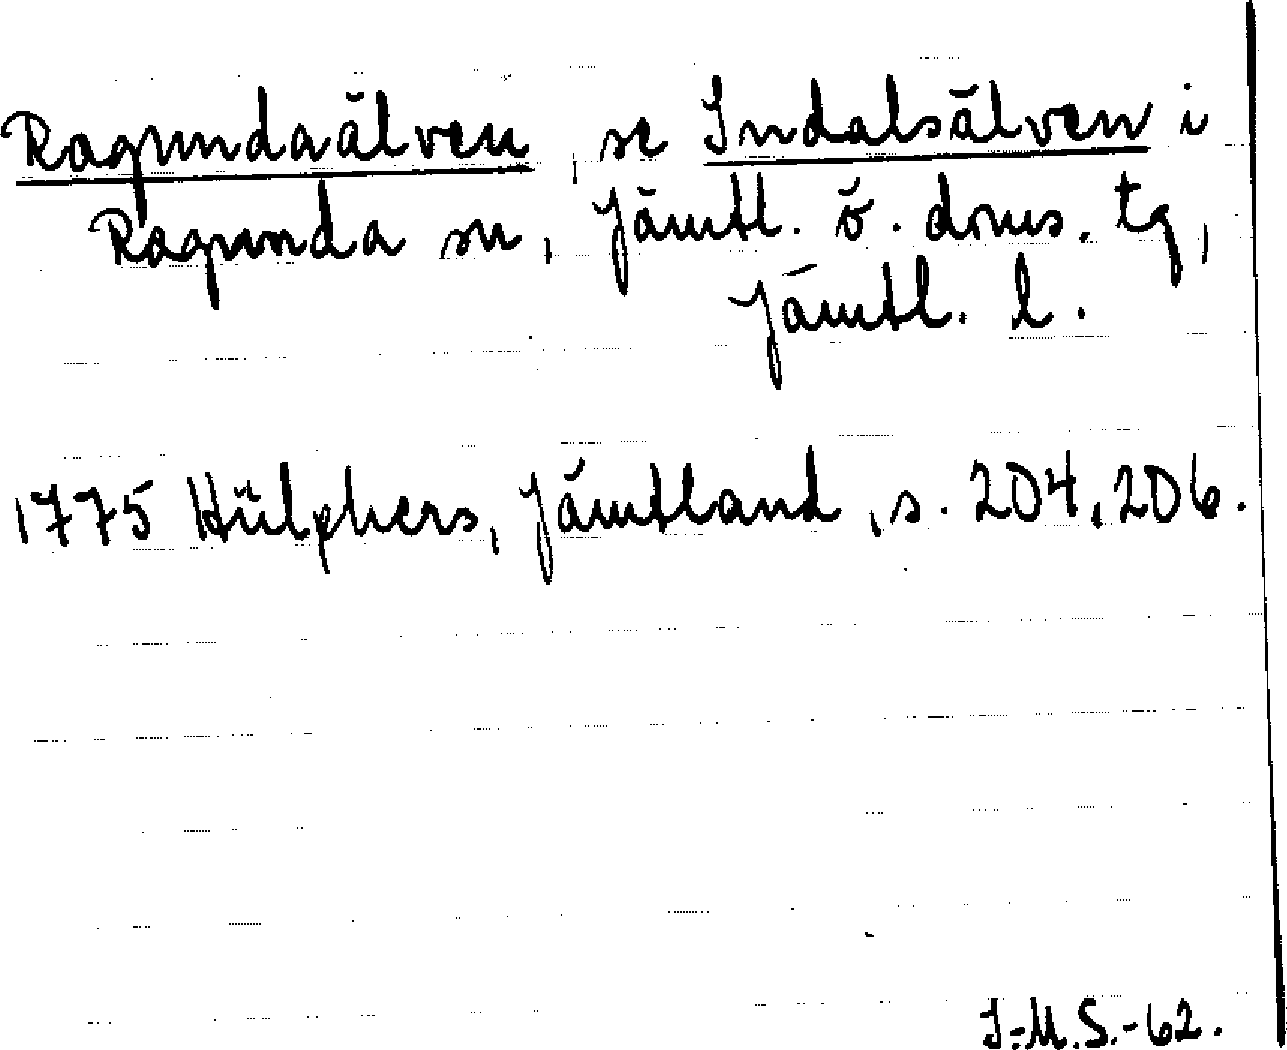 Ragundaälven, se Indalsälven i
Ragunda sn, Jämtl. ö. doms. tg,
Jämtl. l.
1775 Hülphers, Jämtland, s. 204, 206.
I-M.S.-62.